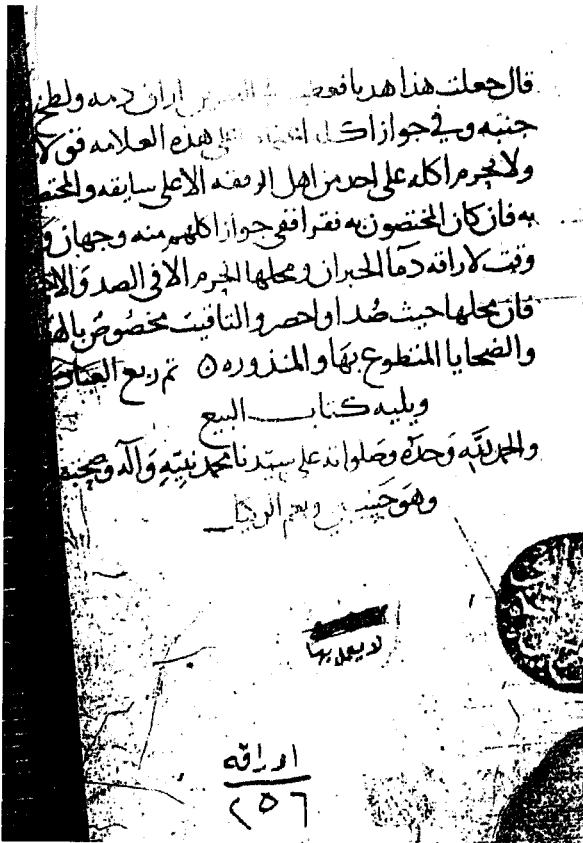 قال جعلت هذا هديا اراق دمه ولطخ
جنبه وفي جواز اكل على هذه العلامه قولا
ولا يحرم اكله على احد من اهل الرفقه الا على سايقه والمختص
به فان كان المختصون به فقرا ففي جواز اكلهم منه وجهان و
وقت لاراقه دما الجبران ومحلها الحرم الا في الصد والا
فان محلها حيث صد او احصر والتاقيت مخصوص باله
والضحايا المتطوع بها والمنذوره ه تم ربع العبادات
ويليه كتاب البيع
والحمد لله وحده وصلواته على سيدنا محمد نبيه وآله وصحبه
وهو حسبي ونعم الوكيل
لا يعمل بها
اوراقه
٢٥٦